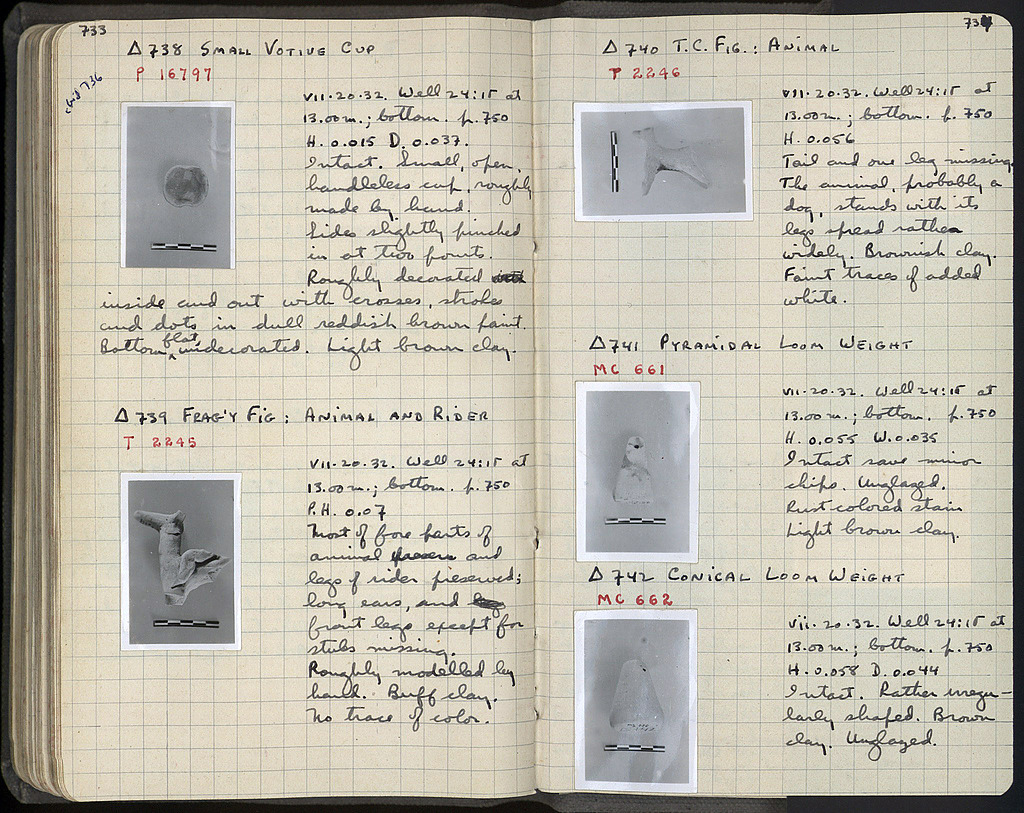 733
Δ 738 SMALL VOTIVE CUP
P 16797
VII·20·32. Well 24:15 at
13.00 m.; bottom. p. 750
H. 0.015 D. 0.037.
Intact. Small, open,
handleless cup, roughly
made by hand.
Sides slightly pinched
in at two points.
Roughly decorated
inside and out with crosses, strokes
and dots in dull reddish brown paint.
Bottom flat, undecorated. Light brown clay.
Δ 739 FRAG'Y FIG: ANIMAL AND RIDER
T 2245
VII·20·32. Well 24:15 at
13.00 m.; bottom. p. 750
P.H. 0.07
Most of fore parts of
animal and
legs of rider preserved;
long ears, and
front legs except for
stubs missing.
Roughly modelled by
hand. Buff clay.
No trace of color.
734
Δ 740 T.C. FIG.: ANIMAL
T 2246
VII·20·32. Well 24:15 at
13.00 m.; bottom. p. 750
H. 0.056
Tail and one leg missing.
The animal, probably a
dog, stands with its
legs spread rather
widely. Brownish clay.
Faint traces of added
white.
Δ 741 PYRAMIDAL LOOM WEIGHT
MC 661
VII·20·32. Well 24:15 at
13.00 m.; bottom. p. 750
H. 0.055 W. 0.035
Intact save minor
chips. Unglazed.
Rust colored stain
Light brown clay.
Δ 742 CONICAL LOOM WEIGHT
MC 662
VII·20·32. Well 24:15 at
13.00 m.; bottom. p. 750
H. 0.058 D. 0.044
Intact. Rather irregu-
larly shaped. Brown
clay. Unglazed.